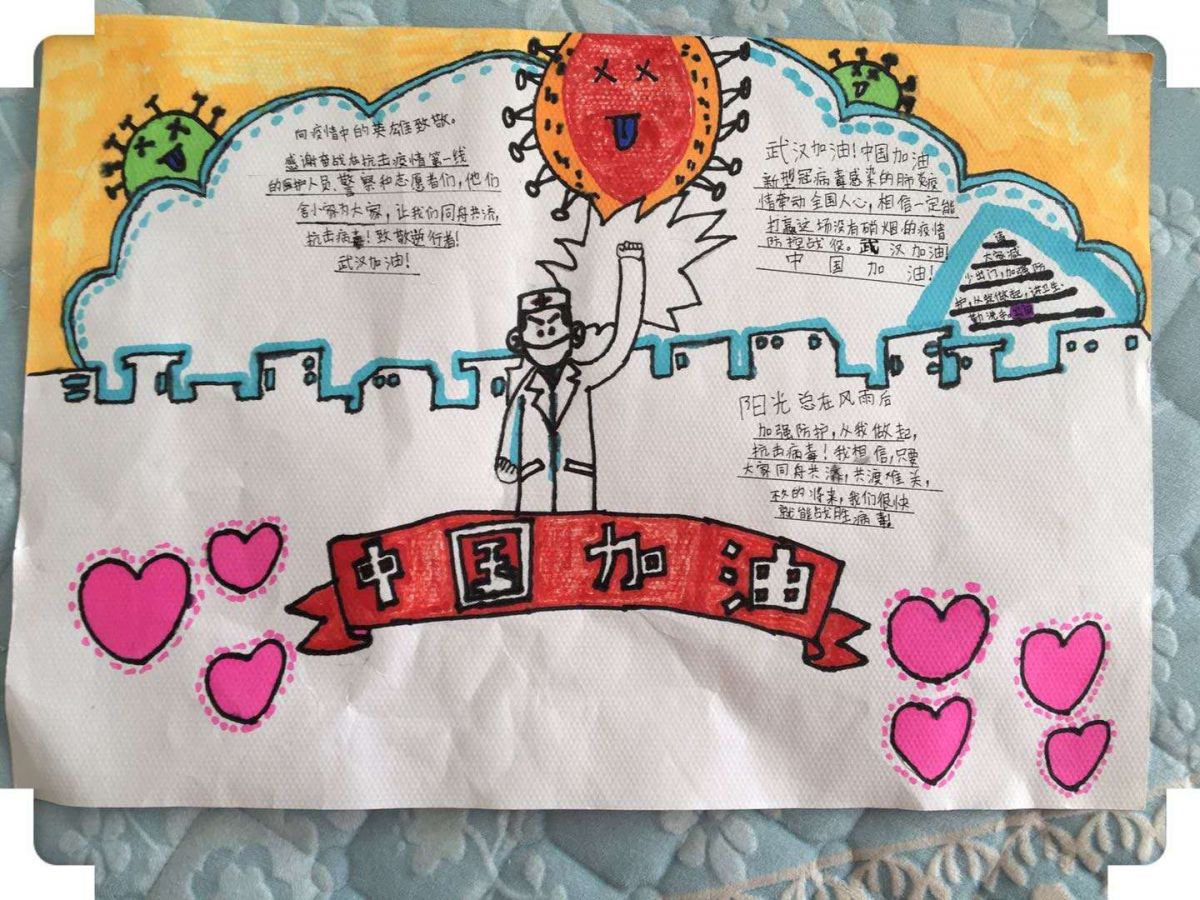 向疫情中的英雄致敬。
感谢奋战在抗击疫情第一线
的医护人员、警察和志愿者们，他们
舍小家为大家，让我们同舟共济，
抗击病毒！致敬逆行者！
武汉加油！
武汉加油！中国加油
新型冠病毒感染的肺炎疫
情牵动全国人心，相信一定能
打赢这场没有硝烟的疫情
防控战役。武汉加油！
中国加油！
请
大家减
少出门，加强防
护，从我做起，讲卫生.
勤洗手。
阳光总在风雨后
加强防护，从我做起，
抗击病毒！我相信，只要
大家同舟共济，共渡难关，
不久的将来，我们很快
就能战胜病毒
中国加油